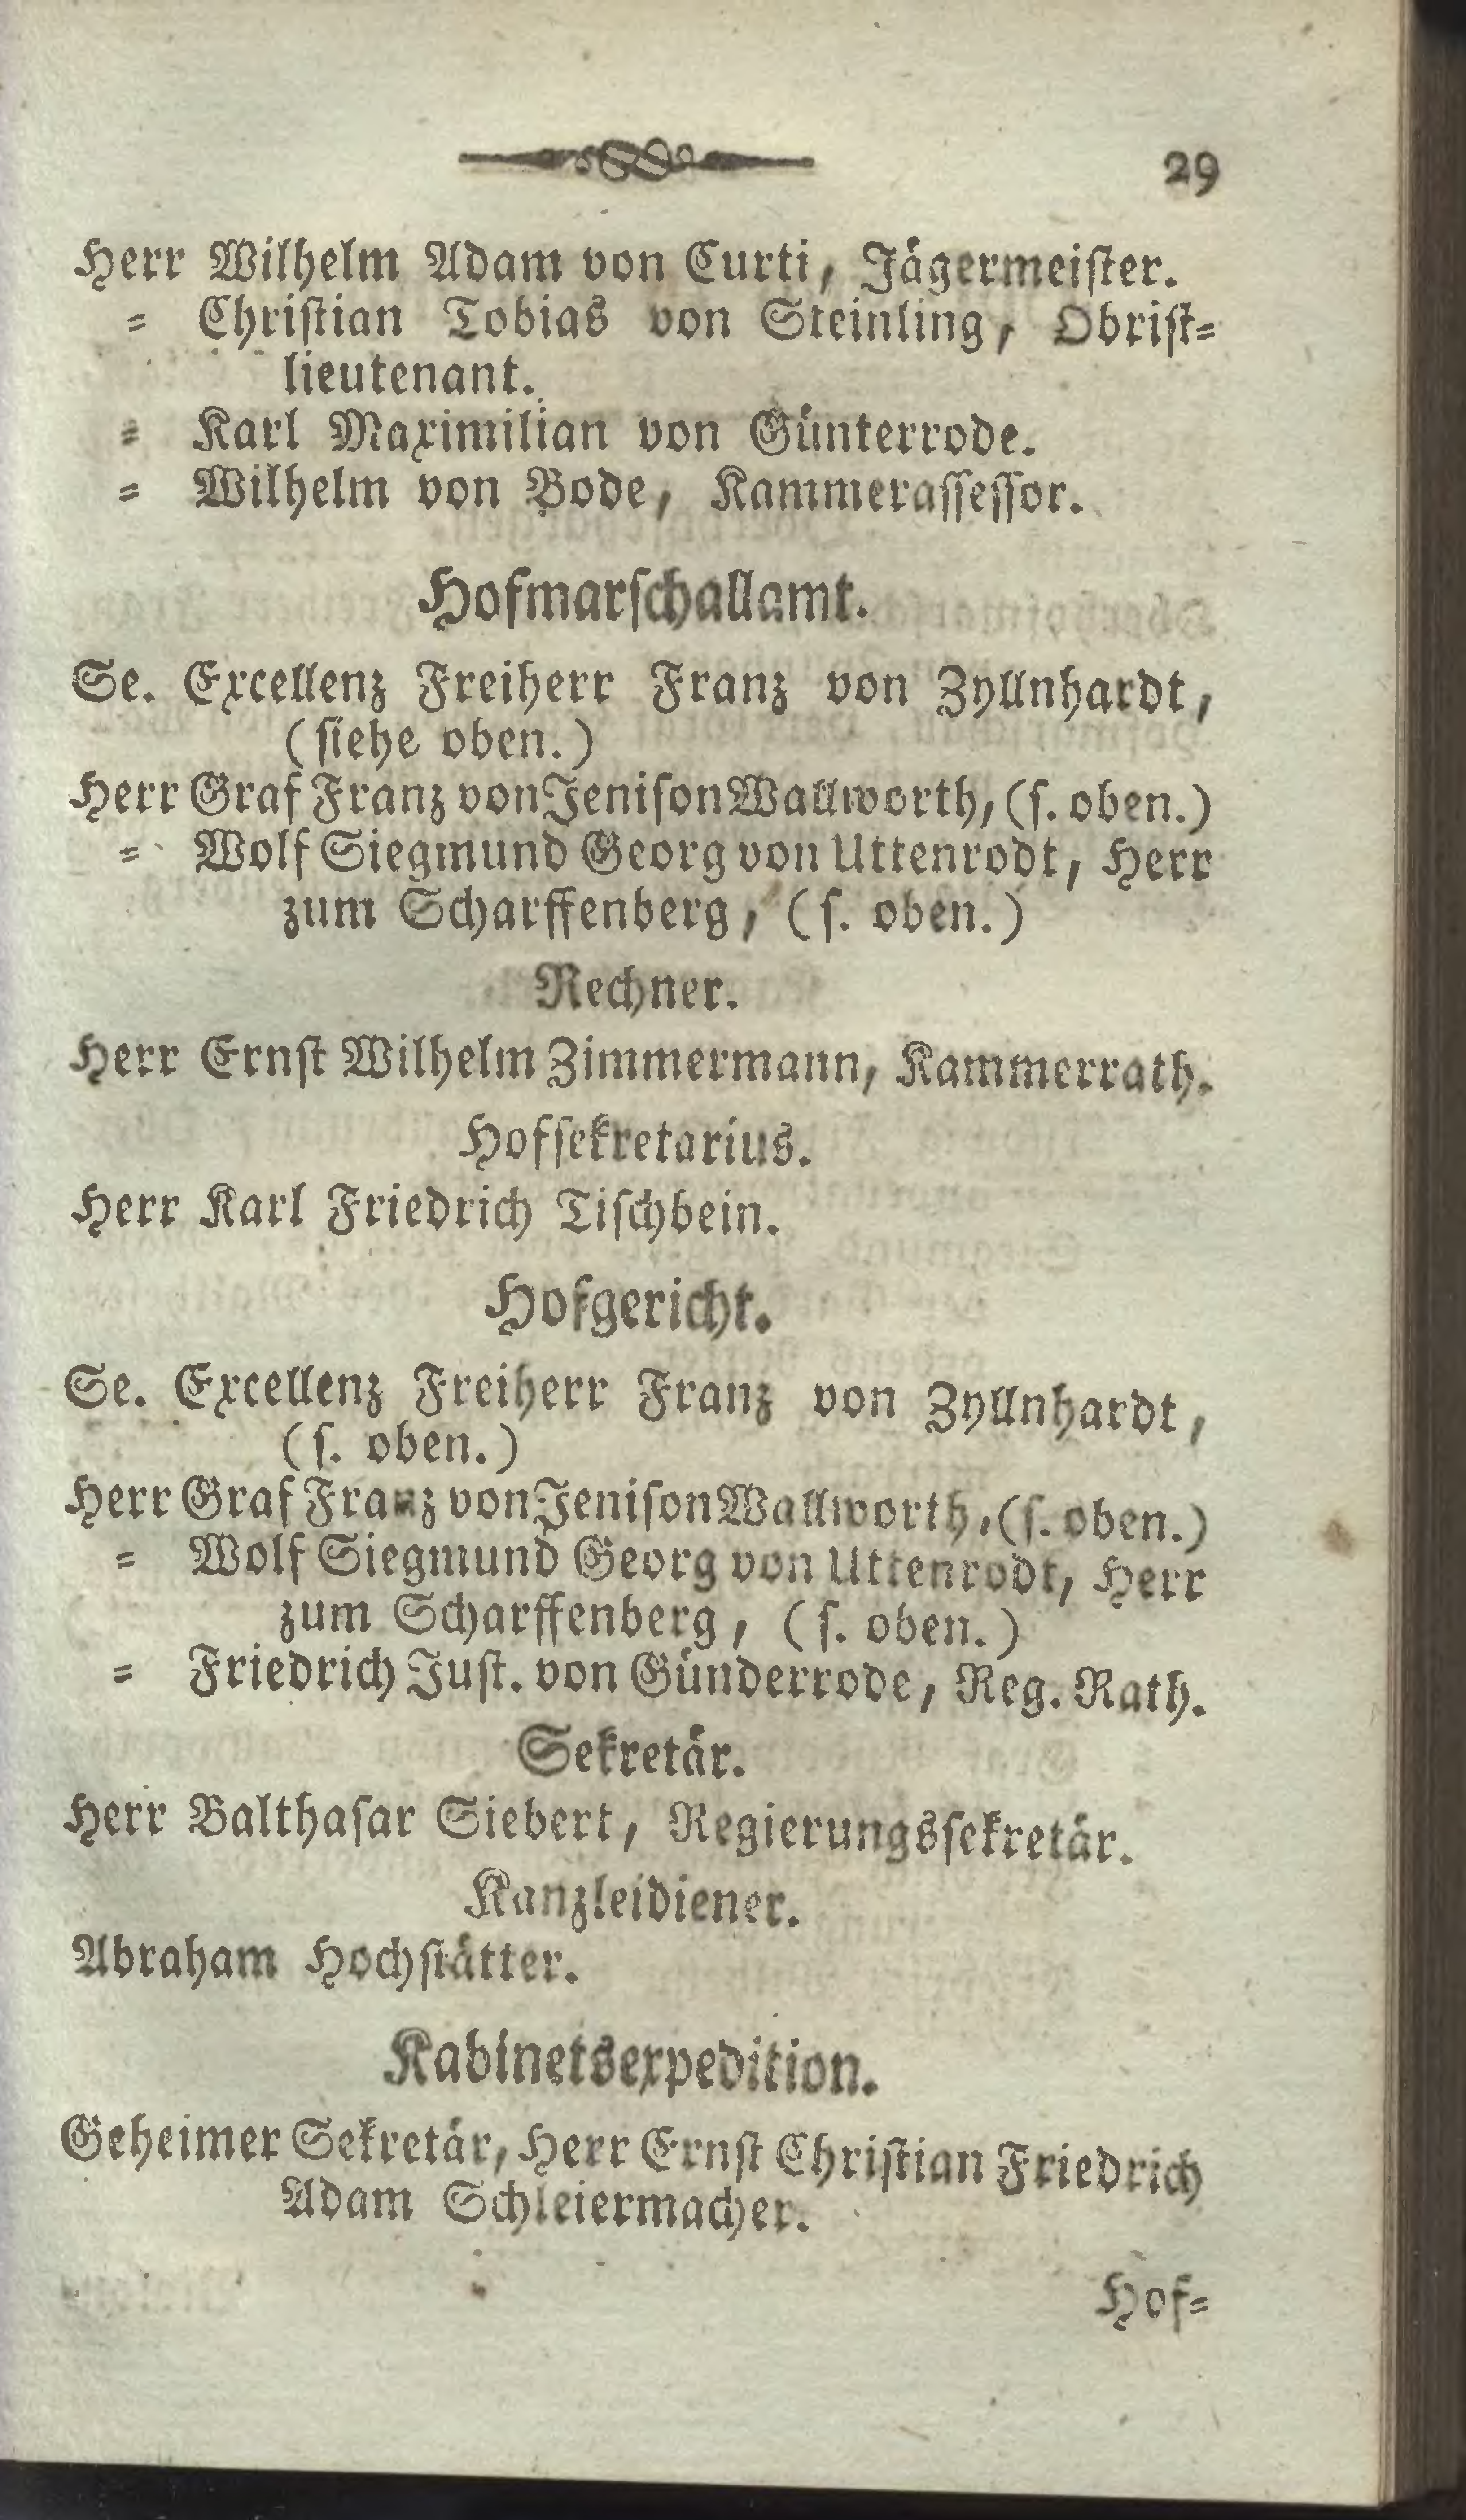 29
Herr Wilhelm Adam von Curti, Jägermeister.
= Christian Tobias von Steinling, Obrist=
lieutenant.
= Karl Maximilian von Günterrode.
= Wilhelm von Bode, Kammerassessor.
Hofmarschallamt.
Se. Excellenz Freiherr Franz von Zyllnhardt,
(siehe oben.)
Herr Graf Franz von Jenison Wallworth, (s. oben.)
= Wolf Siegmund Georg von Uttenrodt, Herr
zum Scharffenberg, (s. oben.)
Rechner.
Herr Ernst Wilhelm Zimmermann, Kammerrath.
Hofsekretarius.
Herr Karl Friedrich Tischbein.
Hofgericht.
Se. Excellenz Freiherr Franz von Zyllnhardt,
(s. oben.)
Herr Graf Franz von Jenison Wallworth, (s. oben.)
= Wolf Siegmund Georg von Uttenrodt, Herr
zum Scharffenberg, (s. oben.)
= Friedrich Just. von Günderrode, Reg. Rath.
Sekretär.
Herr Balthasar Siebert, Regierungssekretär.
Kanzleidiener.
Abraham Hochstätter.
Kabinetsexpedition.
Geheimer Sekretär, Herr Ernst Christian Friedrich
Adam Schleiermacher.
Hof=